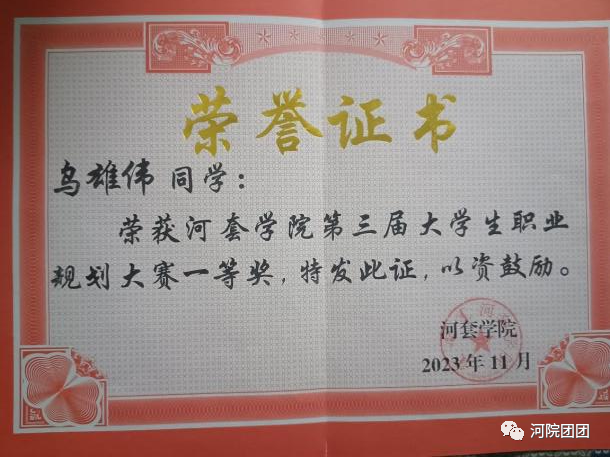 荣誉证书
乌雄伟 同学：
荣获河套学院第三届大学生职业
规划大赛一等奖，特发此证，以资鼓励。
河套学院
2023年11月
河院团团